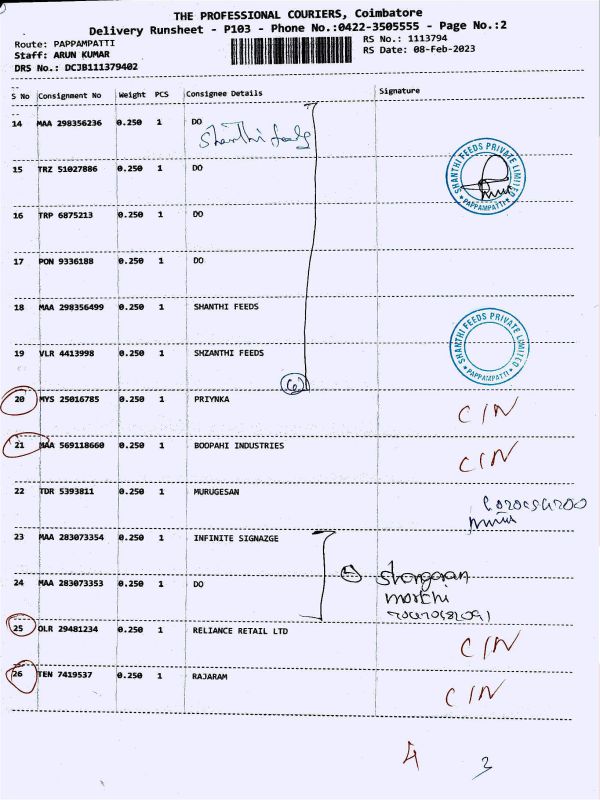 THE PROFESSIONAL COURIERS, Coimbatore
Delivery Runsheet - P103 - Phone No.:0422-3505555 - Page No.:2
Route: PAPPAMPATTI
RS No.: 1113794
Staff: ARUN KUMAR
RS Date: 08-Feb-2023
DRS No.: DCJB111379402
S No Consignment No Weight PCS Consignee Details Signature
14 MAA 298356236 0.250 1 DO
Shanthi feeds
15 TRZ 51027886 0.250 1 DO
SHANTHI FEEDS PRIVATE LIMITED
* PAPPAMPATTI *
16 TRP 6875213 0.250 1 DO
17 PON 9336188 0.250 1 DO
18 MAA 298356499 0.250 1 SHANTHI FEEDS
SHANTHI FEEDS PRIVATE LIMITED
* PAPPAMPATTI *
19 VLR 4413998 0.250 1 SHZANTHI FEEDS
(6)
20 MYS 25016785 0.250 1 PRIYNKA
CIN
21 MAA 569118660 0.250 1 BOOPAHI INDUSTRIES
CIN
22 TDR 5393811 0.250 1 MURUGESAN
23 MAA 283073354 0.250 1 INFINITE SIGNAZGE
24 MAA 283073353 0.250 1 DO
25 OLR 29481234 0.250 1 RELIANCE RETAIL LTD
CIN
26 TEN 7419537 0.250 1 RAJARAM
CIN
4 3